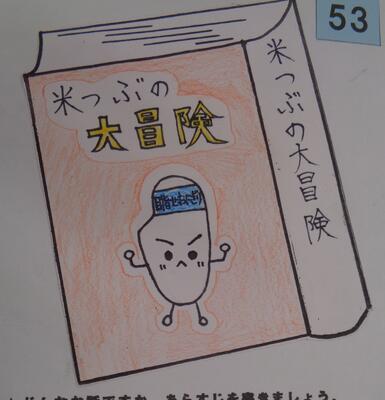 53
米つぶの
大冒険
目指せおにぎり
米つぶの大冒険
どんなお話ですか。あらすじを書きましょう。